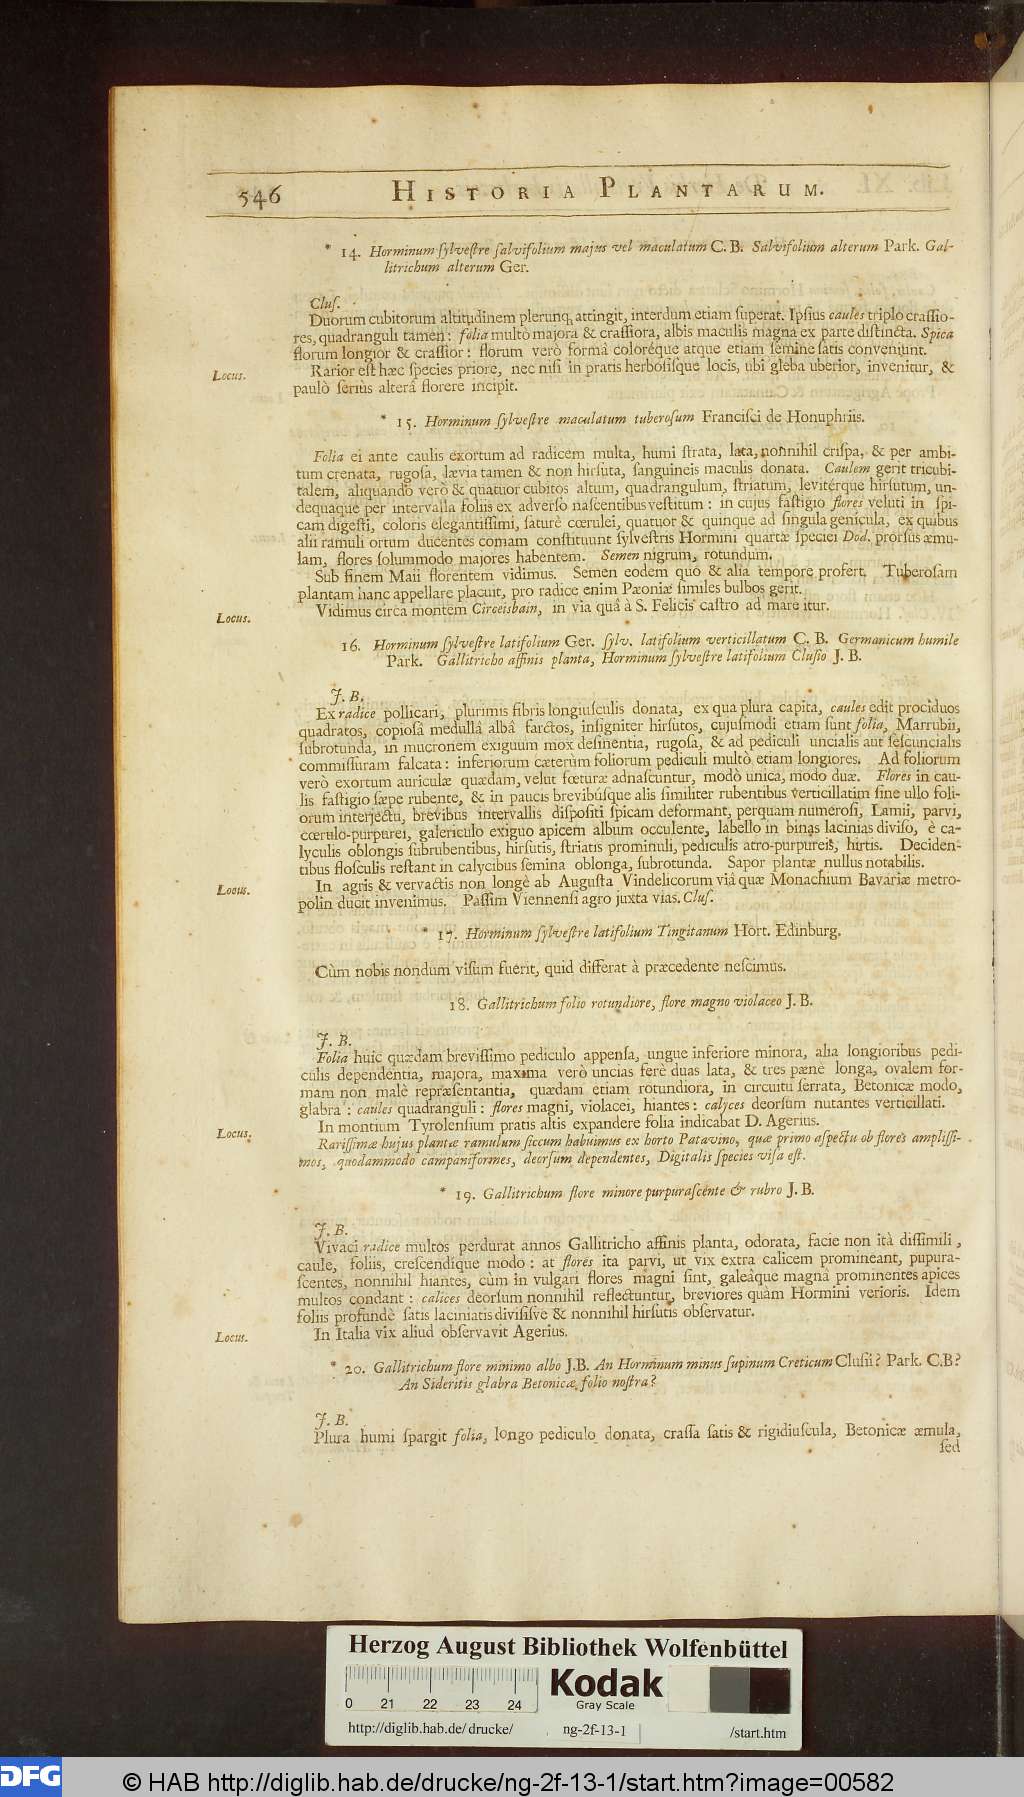 546 HISTORIA PLANTARUM.
* 14. Horminum ſylveſtre ſalvifolium majus vel maculatum C. B. Salvifolium alterum Park. Gal-
litrichum alterum Ger.
Cluſ.
Duorum cubitorum altitudinem plerunq; attingit, interdum etiam ſuperat. Ipſius caules triplo craſſio-
res, quadranguli tamen: folia multò majora & craſſiora, albis maculis magna ex parte diſtincta. Spica
florum longior & craſſior: florum verò formâ coloréque atque etiam ſemine ſatis conveniunt.
Locus. Rarior eſt hæc ſpecies priore, nec niſi in pratis herboſiſque locis, ubi gleba uberior, invenitur, &
paulò ſeriùs alterâ florere incipit.
* 15. Horminum ſylveſtre maculatum tuberoſum Franciſci de Honuphriis.
Folia ei ante caulis exortum ad radicem multa, humi ſtrata, lata, nonnihil criſpa, & per ambi-
tum crenata, rugoſa, lævia tamen & non hirſuta, ſanguineis maculis donata. Caulem gerit tricubi-
talem, aliquando verò & quatuor cubitos altum, quadrangulum, ſtriatum, levitérque hirſutum, un-
dequaque per intervalla foliis ex adverſo naſcentibus veſtitum: in cujus faſtigio flores veluti in ſpi-
cam digeſti, coloris elegantiſſimi, ſaturè cœrulei, quatuor & quinque ad ſingula genicula, ex quibus
alii ramuli ortum ducentes comam conſtituunt ſylveſtris Hormini quartæ ſpeciei Dod. prorſus æmu-
lam, flores ſolummodo majores habentem. Semen nigrum, rotundum.
Sub finem Maii florentem vidimus. Semen eodem quo & alia tempore profert. Tuberoſam
plantam hanc appellare placuit, pro radice enim Pæoniæ ſimiles bulbos gerit.
Locus. Vidimus circa montem Circeisbain, in via quâ à S. Felicis caſtro ad mare itur.
16. Horminum ſylveſtre latifolium Ger. ſylv. latifolium verticillatum C. B. Germanicum humile
Park. Gallitricho affinis planta, Horminum ſylveſtre latifolium Cluſio J. B.
J. B.
Ex radice pollicari, plurimis fibris longiuſculis donata, ex qua plura capita, caules edit prociduos
quadratos, copioſâ medullâ albâ farctos, inſigniter hirſutos, cujuſmodi etiam ſunt folia, Marrubii,
ſubrotunda, in mucronem exiguum mox deſinentia, rugoſa, & ad pediculi uncialis aut ſeſcuncialis
commiſſuram falcata: inferiorum cæterùm foliorum pediculi multò etiam longiores. Ad foliorum
verò exortum auriculæ quædam, velut fœturæ adnaſcuntur, modò unica, modo duæ. Flores in cau-
lis faſtigio ſæpe rubente, & in paucis brevibúſque alis ſimiliter rubentibus verticillatim ſine ullo foli-
orum interjectu, brevibus intervallis diſpoſiti ſpicam deformant, perquam numeroſi, Lamii, parvi,
cœrulo-purpurei, galericulo exiguo apicem album occulente, labello in binas lacinias diviſo, è ca-
lyculis oblongis ſubrubentibus, hirſutis, ſtriatis prominuli, pediculis atro-purpureis, hirtis. Deciden-
tibus floſculis reſtant in calycibus ſemina oblonga, ſubrotunda. Sapor plantæ nullus notabilis.
Locus. In agris & vervactis non longè ab Auguſta Vindelicorum viâ quæ Monachium Bavariæ metro-
polin ducit invenimus. Paſſim Viennenſi agro juxta vias. Cluſ.
* 17. Horminum ſylveſtre latifolium Tingitanum Hort. Edinburg.
Cùm nobis nondum viſum fuerit, quid differat à præcedente neſcimus.
18. Gallitrichum folio rotundiore, flore magno violaceo J. B.
J. B.
Folia huic quædam breviſſimo pediculo appenſa, ungue inferiore minora, alia longioribus pedi-
culis dependentia, majora, maxima verò uncias ferè duas lata, & tres pæne longa, ovalem for-
mam non malè repræſentantia, quædam etiam rotundiora, in circuitu ſerrata, Betonicæ modo,
glabra: caules quadranguli: flores magni, violacei, hiantes: calyces deorſum nutantes verticillati.
Locus. In montium Tyrolenſium pratis altis expandere folia indicabat D. Agerius.
Rariſſimæ hujus plantæ ramulum ſiccum habuimus ex horto Patavino, quæ primo aſpectu ob flores ampliſſi-
mos, quodammodo campaniformes, deorſum dependentes, Digitalis ſpecies viſa eſt.
* 19. Gallitrichum flore minore purpuraſcente & rubro J. B.
J. B.
Vivaci radice multos perdurat annos Gallitricho affinis planta, odorata, facie non ità diſſimili,
caule, foliis, creſcendique modo: at flores ita parvi, ut vix extra calicem promineant, pupura-
ſcentes, nonnihil hiantes, cùm in vulgari flores magni ſint, galeâque magnâ prominentes apices
multos condant: calices deorſum nonnihil reflectuntur, breviores quàm Hormini verioris. Idem
foliis profundè ſatis laciniatis diviſiſve & nonnihil hirſutis obſervatur.
Locus. In Italia vix aliud obſervavit Agerius.
* 20. Gallitrichum flore minimo albo J.B. An Horminum minus ſupinum Creticum Cluſii? Park. C.B?
An Sideritis glabra Betonicæ folio noſtra?
J. B.
Plura humi ſpargit folia, longo pediculo donata, craſſa ſatis & rigidiuſcula, Betonicæ æmula,
ſed
Herzog August Bibliothek Wolfenbüttel
0 21 22 23 24
Kodak
Gray Scale
http://diglib.hab.de/drucke/ ng-2f-13-1 /start.htm
DFG © HAB http://diglib.hab.de/drucke/ng-2f-13-1/start.htm?image=00582